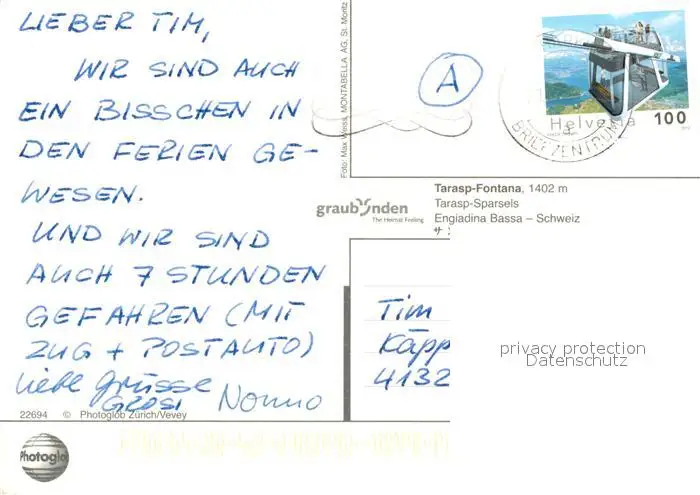 LIEBER TIM,
WIR SIND AUCH
EIN BISSCHEN IN
DEN FERIEN GE-
WESEN.
UND WIR SIND
AUCH 7 STUNDEN
GEFAHREN (MIT
ZUG + POSTAUTO)
Liebe Grüsse
GROSI Nonno
22694 © Photoglob Zürich/Vevey
Photoglob
Foto: Max Weiss, MONTABELLA AG, St. Moritz
A
Helvetia 100
BRIEFZENTRUM
graubünden
The Heimat Feeling
Tarasp-Fontana, 1402 m
Tarasp-Sparsels
Engiadina Bassa – Schweiz
Tim
Käpp
4132
privacy protection
Datenschutz